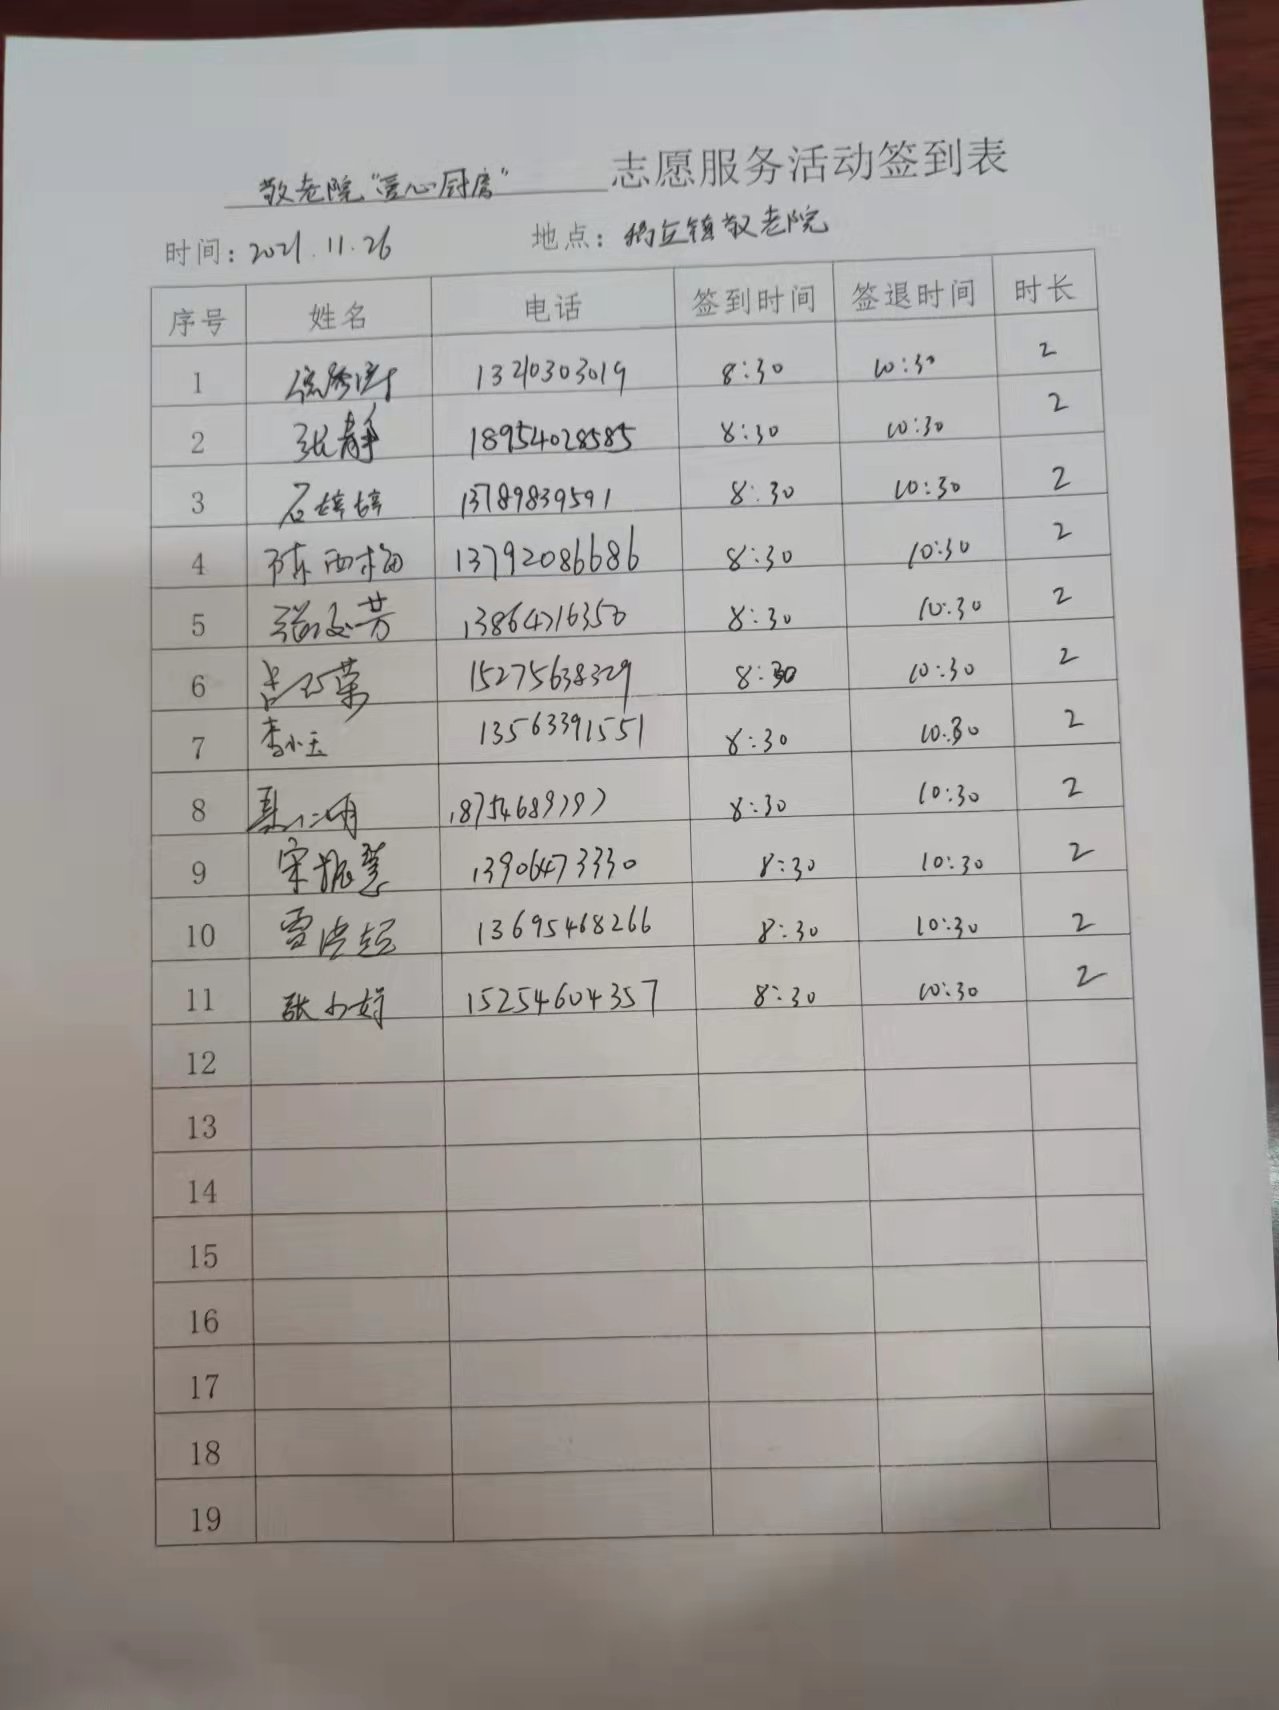 敬老院"爱心厨房" 志愿服务活动签到表
时间：2021.11.26 地点：镇敬老院
序号 姓名 电话 签到时间 签退时间 时长
1 13210303019 8:30 10:30 2
2 张静 18954028585 8:30 10:30 2
3 石婷婷 13789839591 8:30 10:30 2
4 陈西梅 13792086686 8:30 10:30 2
5 芳 13864716350 8:30 10:30 2
6 吕巧荣 15275638329 8:30 10:30 2
7 李小玉 13563391551 8:30 10:30 2
8 18754689797 8:30 10:30 2
9 宋振慧 13906473330 8:30 10:30 2
10 雪洪超 13695468266 8:30 10:30 2
11 张小婷 15254604357 8:30 10:30 2
12
13
14
15
16
17
18
19